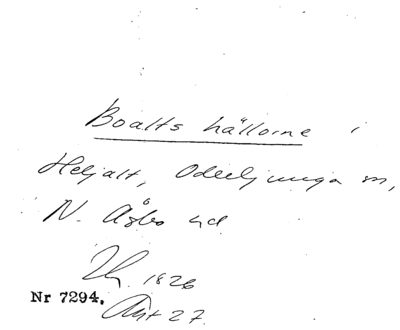 Boalts hällorne i
Heljalt, Oderljunga sn,
N. Åsbo hd
1826
Nr 7294.
Akt 27.